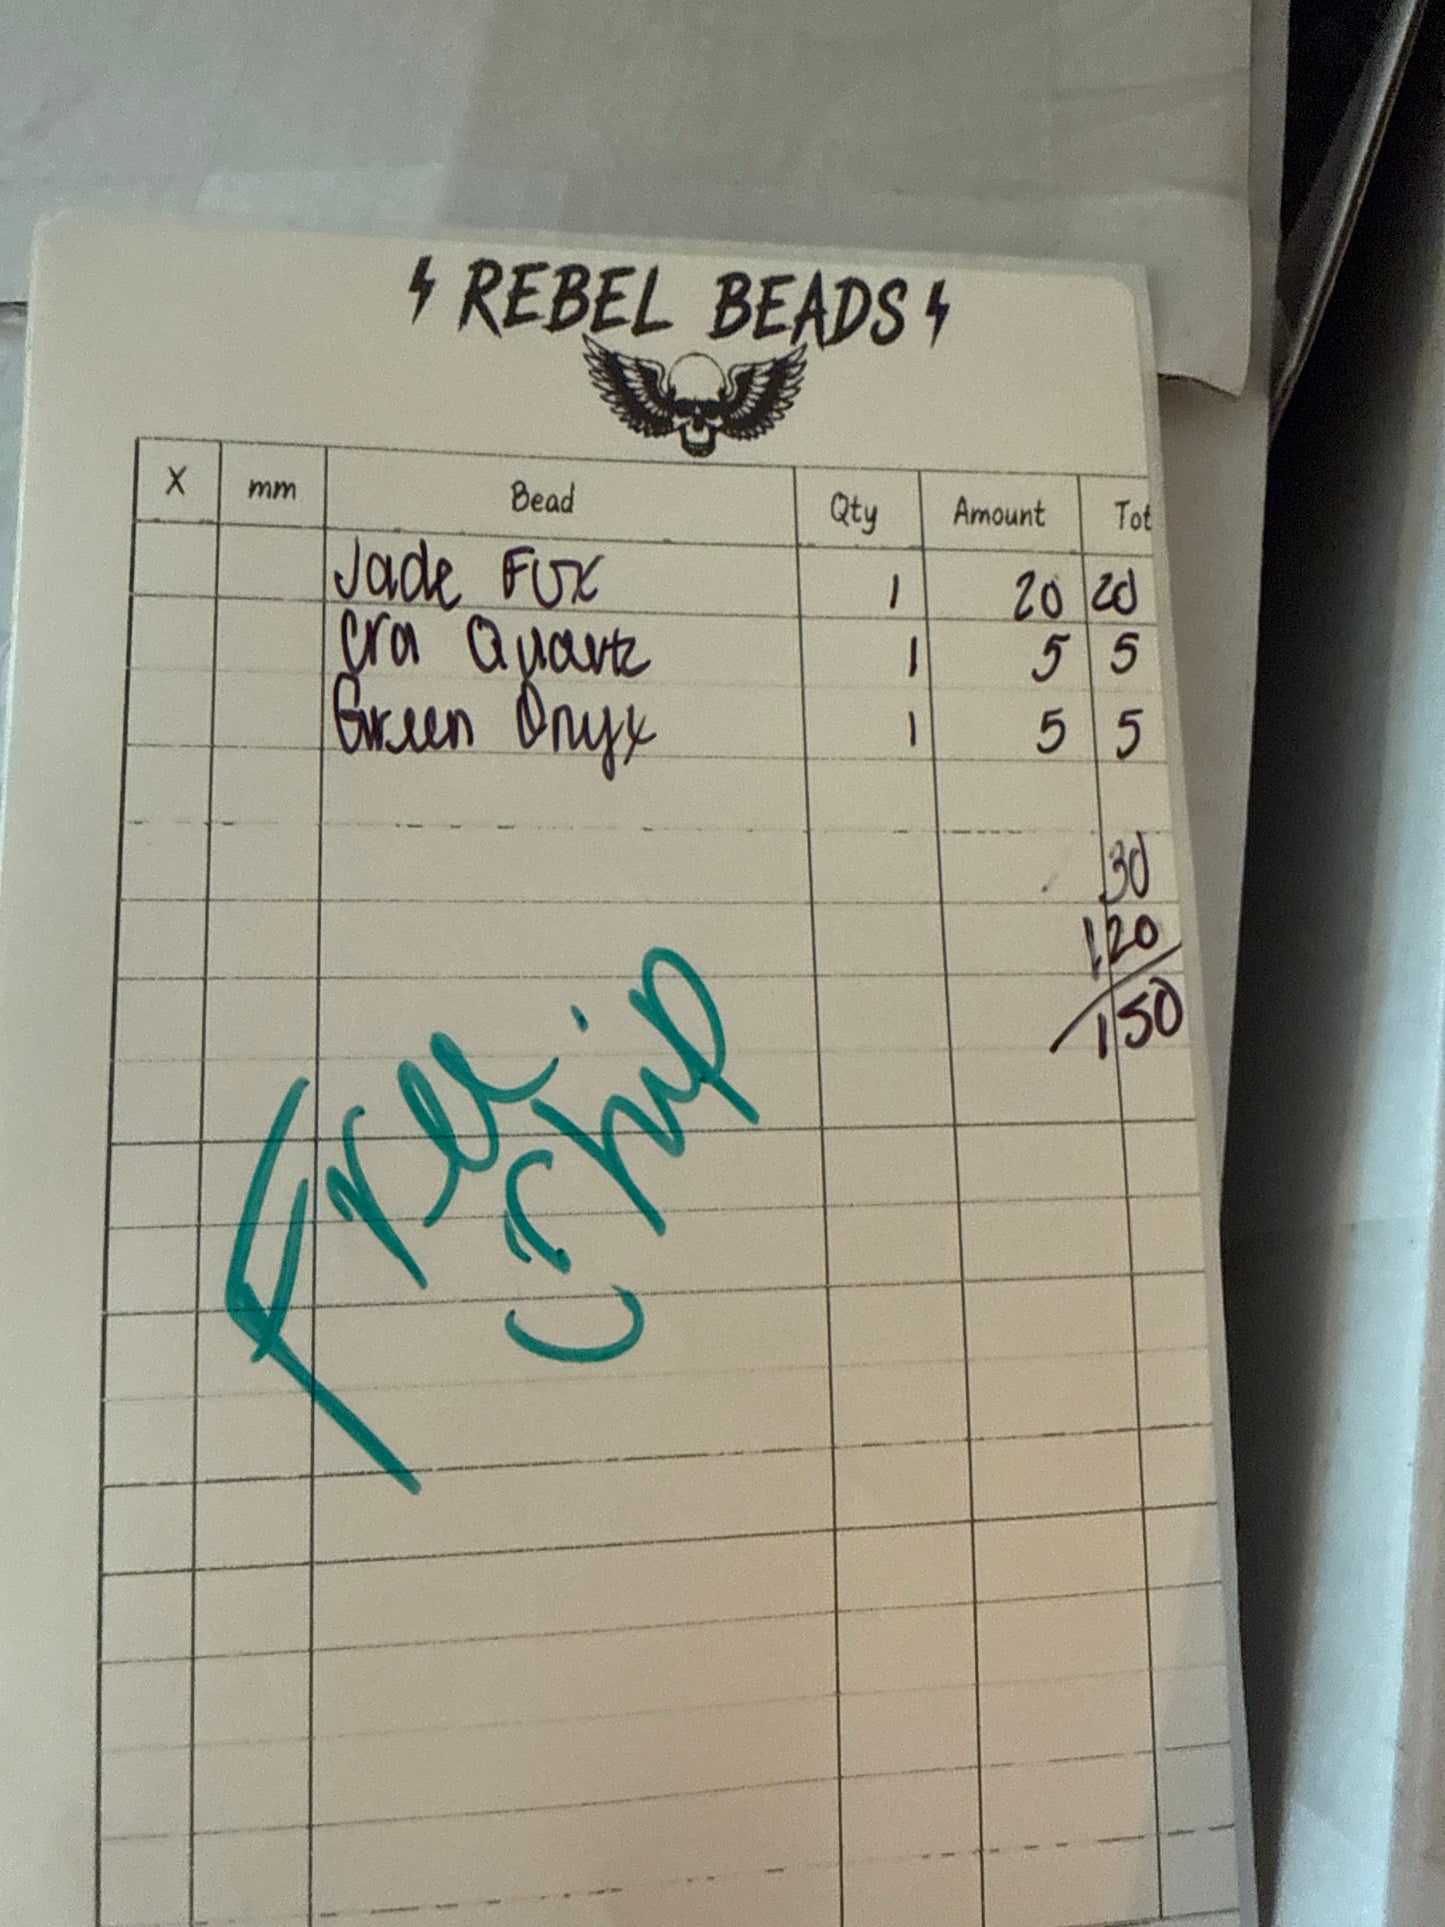 REBEL BEADS
X mm Bead Qty Amount Tot
Jade Fox 1 20 20
Cra Quartz 1 5 5
Green Onyx 1 5 5
30
120
150
Free
Ship